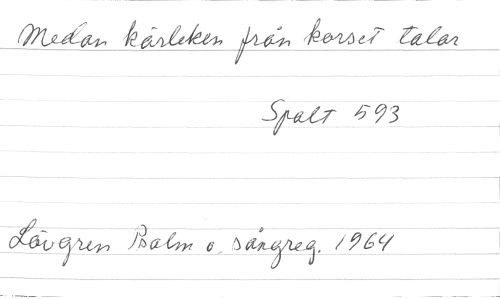 Medan kärleken från korset talar
Spalt 593
Lövgren Psalm o. sångreg. 1964